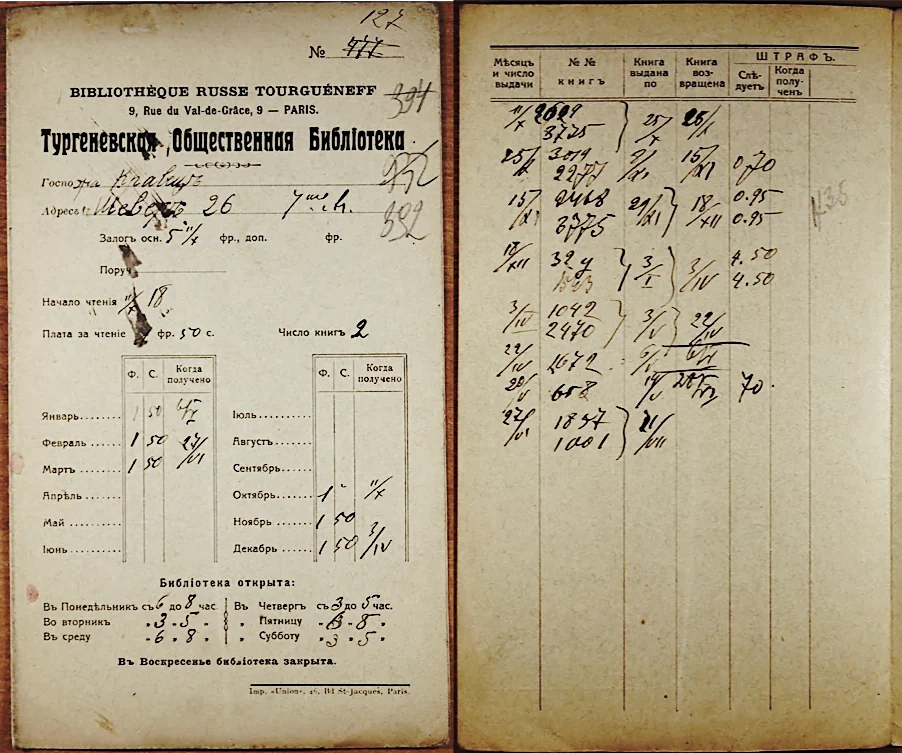 127
№ 477
BIBLIOTHÈQUE RUSSE TOURGUÉNEFF
394
9, Rue du Val-de-Grâce, 9 — PARIS.
Тургеневская Общественная Библіотека
Госпо
Адресъ: 26
392
Залогъ осн. 5 11/X фр., доп. фр.
Поруч
Начало чтенія 11/X 18
Плата за чтеніе фр. 50 с. Число книгъ 2
Ф. С. Когда получено Ф. С. Когда получено
Январь 1 50 Іюль
Февраль 1 50 27/VI Августъ
Мартъ 1 50 Сентябрь
Апрѣль Октябрь 1 11/X
Май Ноябрь 1 50
Іюнь Декабрь 1 50 3/IV
Библіотека открыта:
Въ Понедѣльникъ съ 6 до 8 час. Въ Четвергъ съ 3 до 5 час.
Во вторникъ „ 3 - 5 „ „ Пятницу „ 6 - 8 „
Въ среду „ 6 „ 8 „ „ Субботу „ 3 „ 5 „
Въ Воскресенье библіотека закрыта.
Imp. «Union», 46, Bd St-Jacques, Paris.
Мѣсяцъ и число выдачи № № книгъ Книга выдана по Книга возвращена ШТРАФЪ.
Слѣдуетъ Когда получен
11/X 2629 25/X 25/X
3775
25/X 3019 9/XI 15/XI 0,70
2277
15/XI 2468 29/XI 18/XII 0.95
3775 0.95
18/XII 3/I 3/IV 4.50
4.50
3/IV 1042 3/V 22/IV
2470
22/IV 1672 6/V 6/V
658 70.
27/VI 1857 11/VII
1001